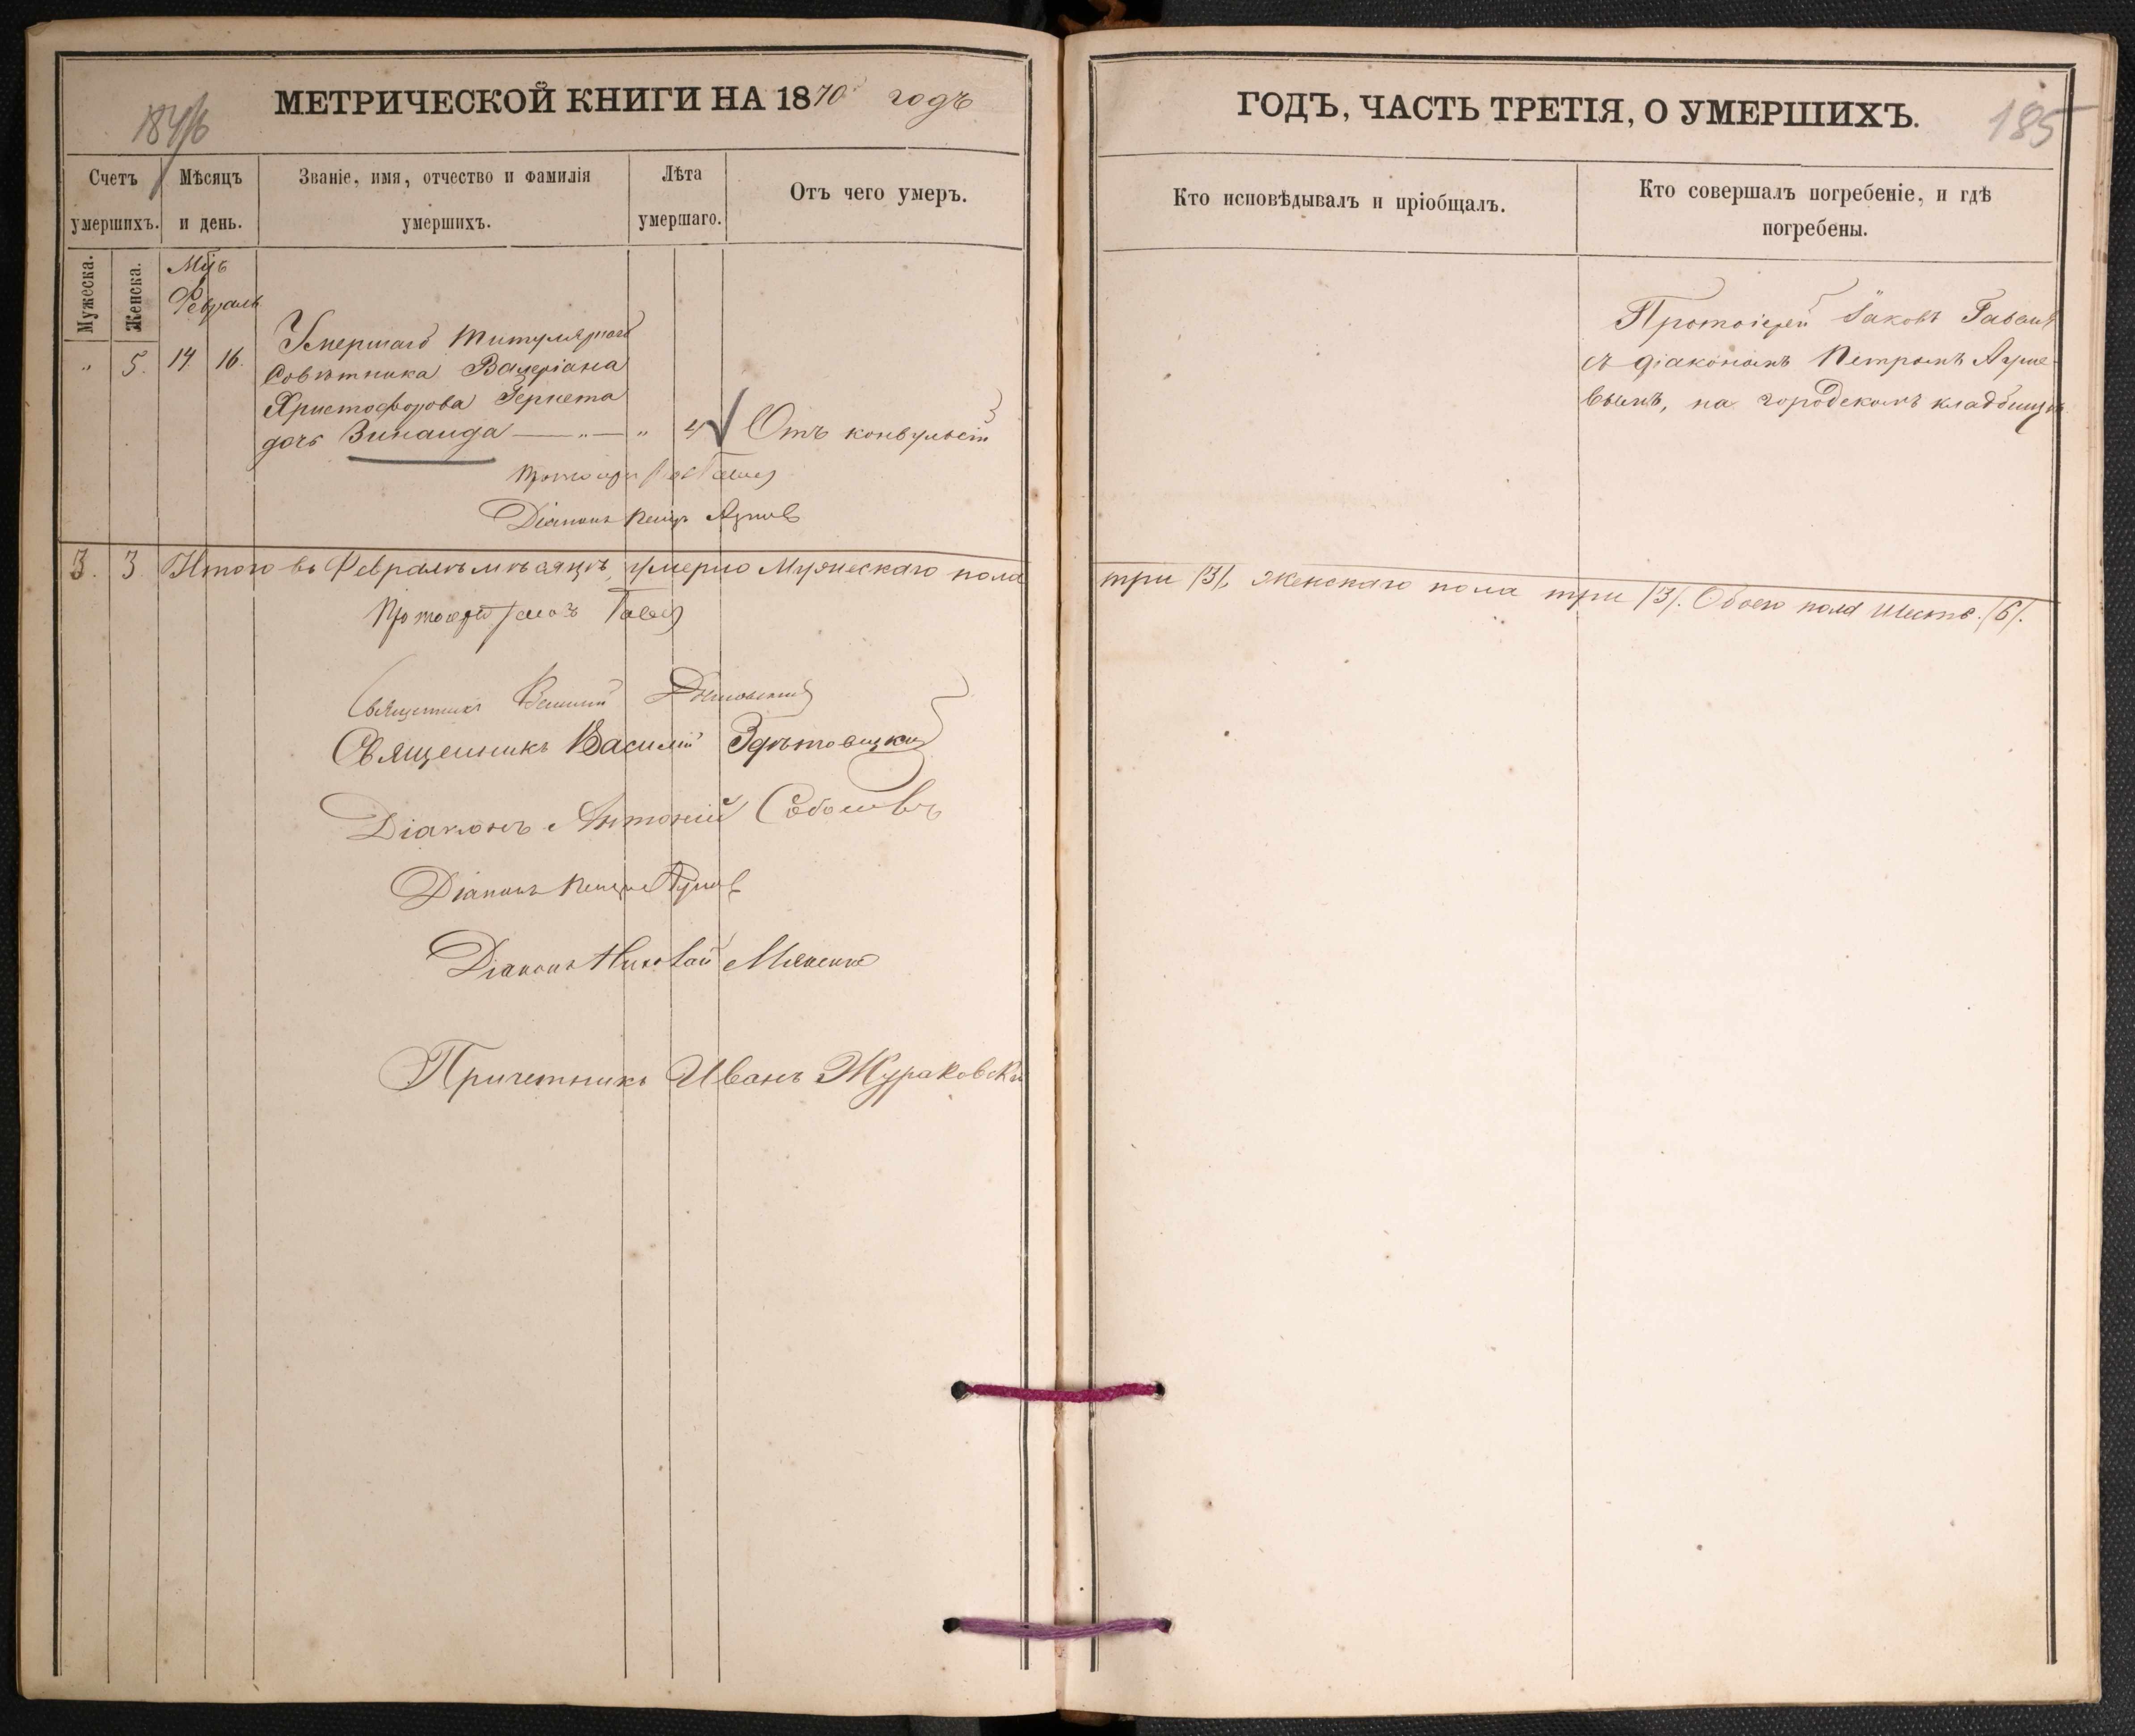 МЕТРИЧЕСКОЙ КНИГИ НА 1870 годъ
ГОДЪ, ЧАСТЬ ТРЕТІЯ, О УМЕРШИХЪ.
185
Счетъ умершихъ.
Мѣсяцъ и день.
Званіе, имя, отчество и фамилія умершихъ.
Лѣта умершаго.
Отъ чего умеръ.
Кто исповѣдывалъ и пріобщалъ.
Кто совершалъ погребеніе, и гдѣ погребены.
Мужеска.
Женска.
Мць
Февраль
" 5. 14 16.
Умершаго Титулярнаго
Совѣтника Валеріана
Христофорова Гернета
дочь Зинаида — " — " 4
Отъ конвульсіи
Протоіерей Іаковъ
съ діакономъ Петромъ
вымъ, на городскомъ кладбищѣ
Діаконъ Петръ
3. 3. Итого въ Февралѣ мѣсяцѣ, умерло Мужескаго пола три /3/, женскаго пола три /3/. Обоего пола шесть. /6/.
Протоіерей Іаковъ
Священникъ
Священникъ Василій
Діаконъ Антоній
Діаконъ Петръ
Діаконъ Николай
Причетникъ Иванъ Жураковскій